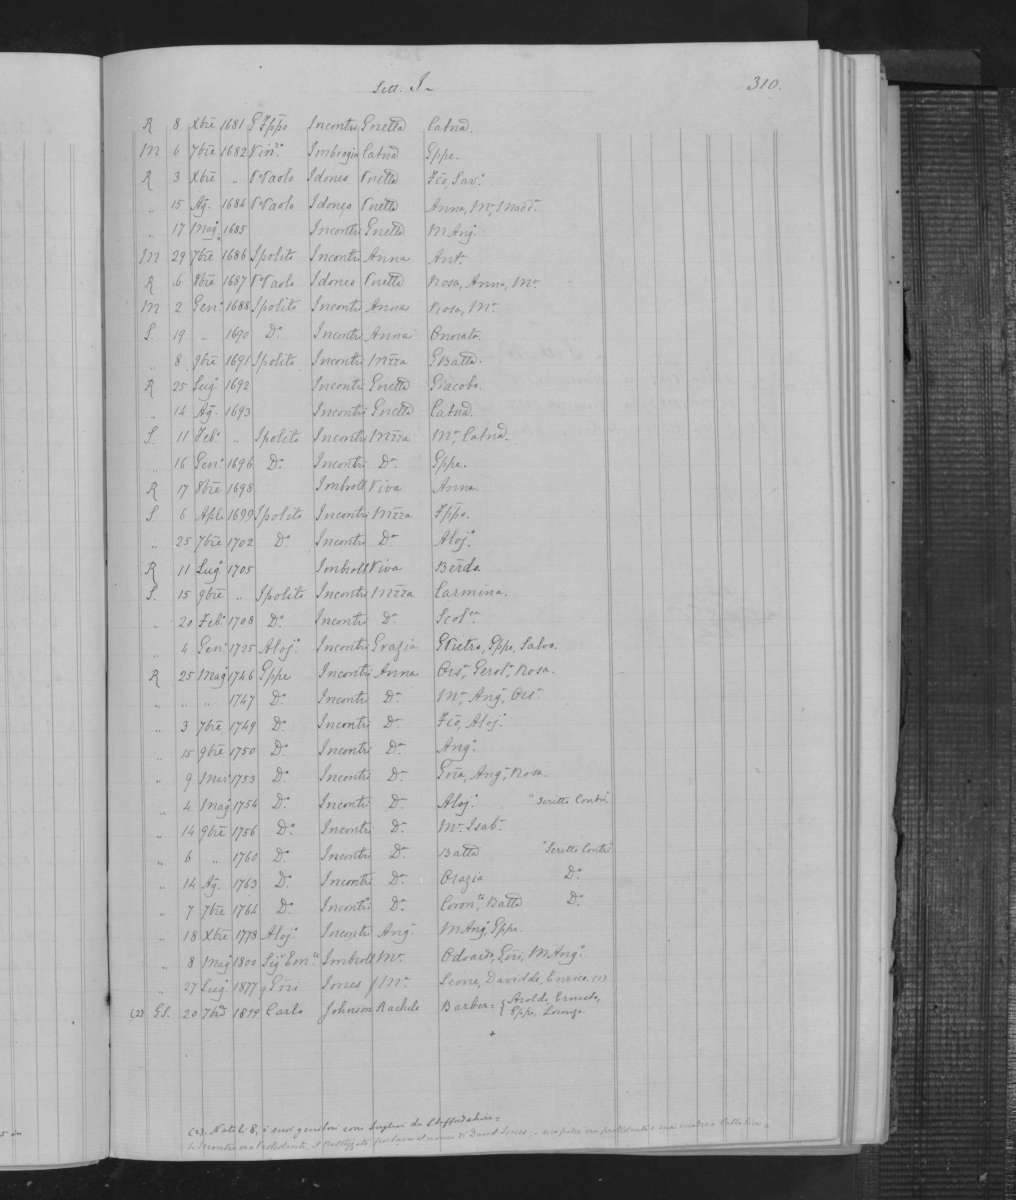 Lett. I
310.
R 8 Xbre 1681 G Fppo Incontri Gnetta Catna.
M 6 7bre 1682 Vinzo Imbrogia Catna Gppe.
R 3 Xbre „ P. Paolo Idoneo Pnetta Fco, Sav.
„ 15 Ag. 1684 P. Paolo Idoneo Pnetta Anna, Ma, Madd.
„ 17 Mag. 1685 Incontri Gnetta M Ang.
M 29 7bre 1686 Ipolito Incontri Anna Ant.
R 6 8bre 1687 P. Paolo Idoneo Pnetta Rosa, Anna, Ma
M 2 Gen. 1688 Ipolito Incontri Anna Rosa, Ma
S. 19 „ 1690 Do Incontri Anna Onorato.
„ 8 9bre 1691 Ipolito Incontri Mzza GBatta.
R 25 Lug. 1692 Incontri Gnetta Giacobo.
„ 14 Ag. 1693 Incontri Gnetta Catna.
S. 11 Feb. „ Ipolito Incontri Mzza Ma, Catna.
„ 16 Gen. 1696 Do Incontri Da Gppe.
R 17 8bre 1698 Imbroll Viva Anna.
S 6 Aple 1699 Ipolito Incontri Mzza Fppo.
„ 25 7bre 1702 Do Incontri Da Aloj.
R 11 Lug. 1705 Imbroll Viva Berda
S. 15 9bre „ Ipolito Incontri Mzza Carmina.
„ 20 Feb. 1708 Do Incontri Da Scolca.
„ 4 Gen. 1725 Aloj. Incontri Grazia GPietro, Gppe, Salva.
R 25 Mag. 1746 Gppe Incontri Anna Ors., Gerol., Rosa.
„ „ „ 1747 Do Incontri Da Ma, Ang., Ors.
„ 3 7bre 1749 Do Incontri Da Fco, Aloj.
„ 15 9bre 1750 Do Incontri Da Ang.
„ 9 1753 Do Incontri Da Ang., Rosa.
„ 4 Mag. 1754 Do Incontri Da Aloj. "Scritto Contri
„ 14 9bre 1756 Do Incontri Da Ma Isab.
„ 6 „ 1760 Do Incontri Da Batta "Scritto Contri
„ 14 Ag. 1763 Do Incontri Da Orazia Do
„ 7 7bre 1764 Do Incontri Da Coron., Batta Do
„ 18 Xbre 1778 Aloj. Incontri Ang. M Ang. Gppe.
„ 8 Mag. 1800 Imbroll Ma Odoardo, M Ang.
„ 27 Lug. 1877 Jones Ma Leone, Davidde, Enrico.
(2) ES. 20 1879 Carlo Johnson Rachele Barber = { Aroldo, Ernesto,
Gppe, Lorenzo.
+
(2). Nato li 8, i suoi genitori sono Inglesi di Staffordshire.